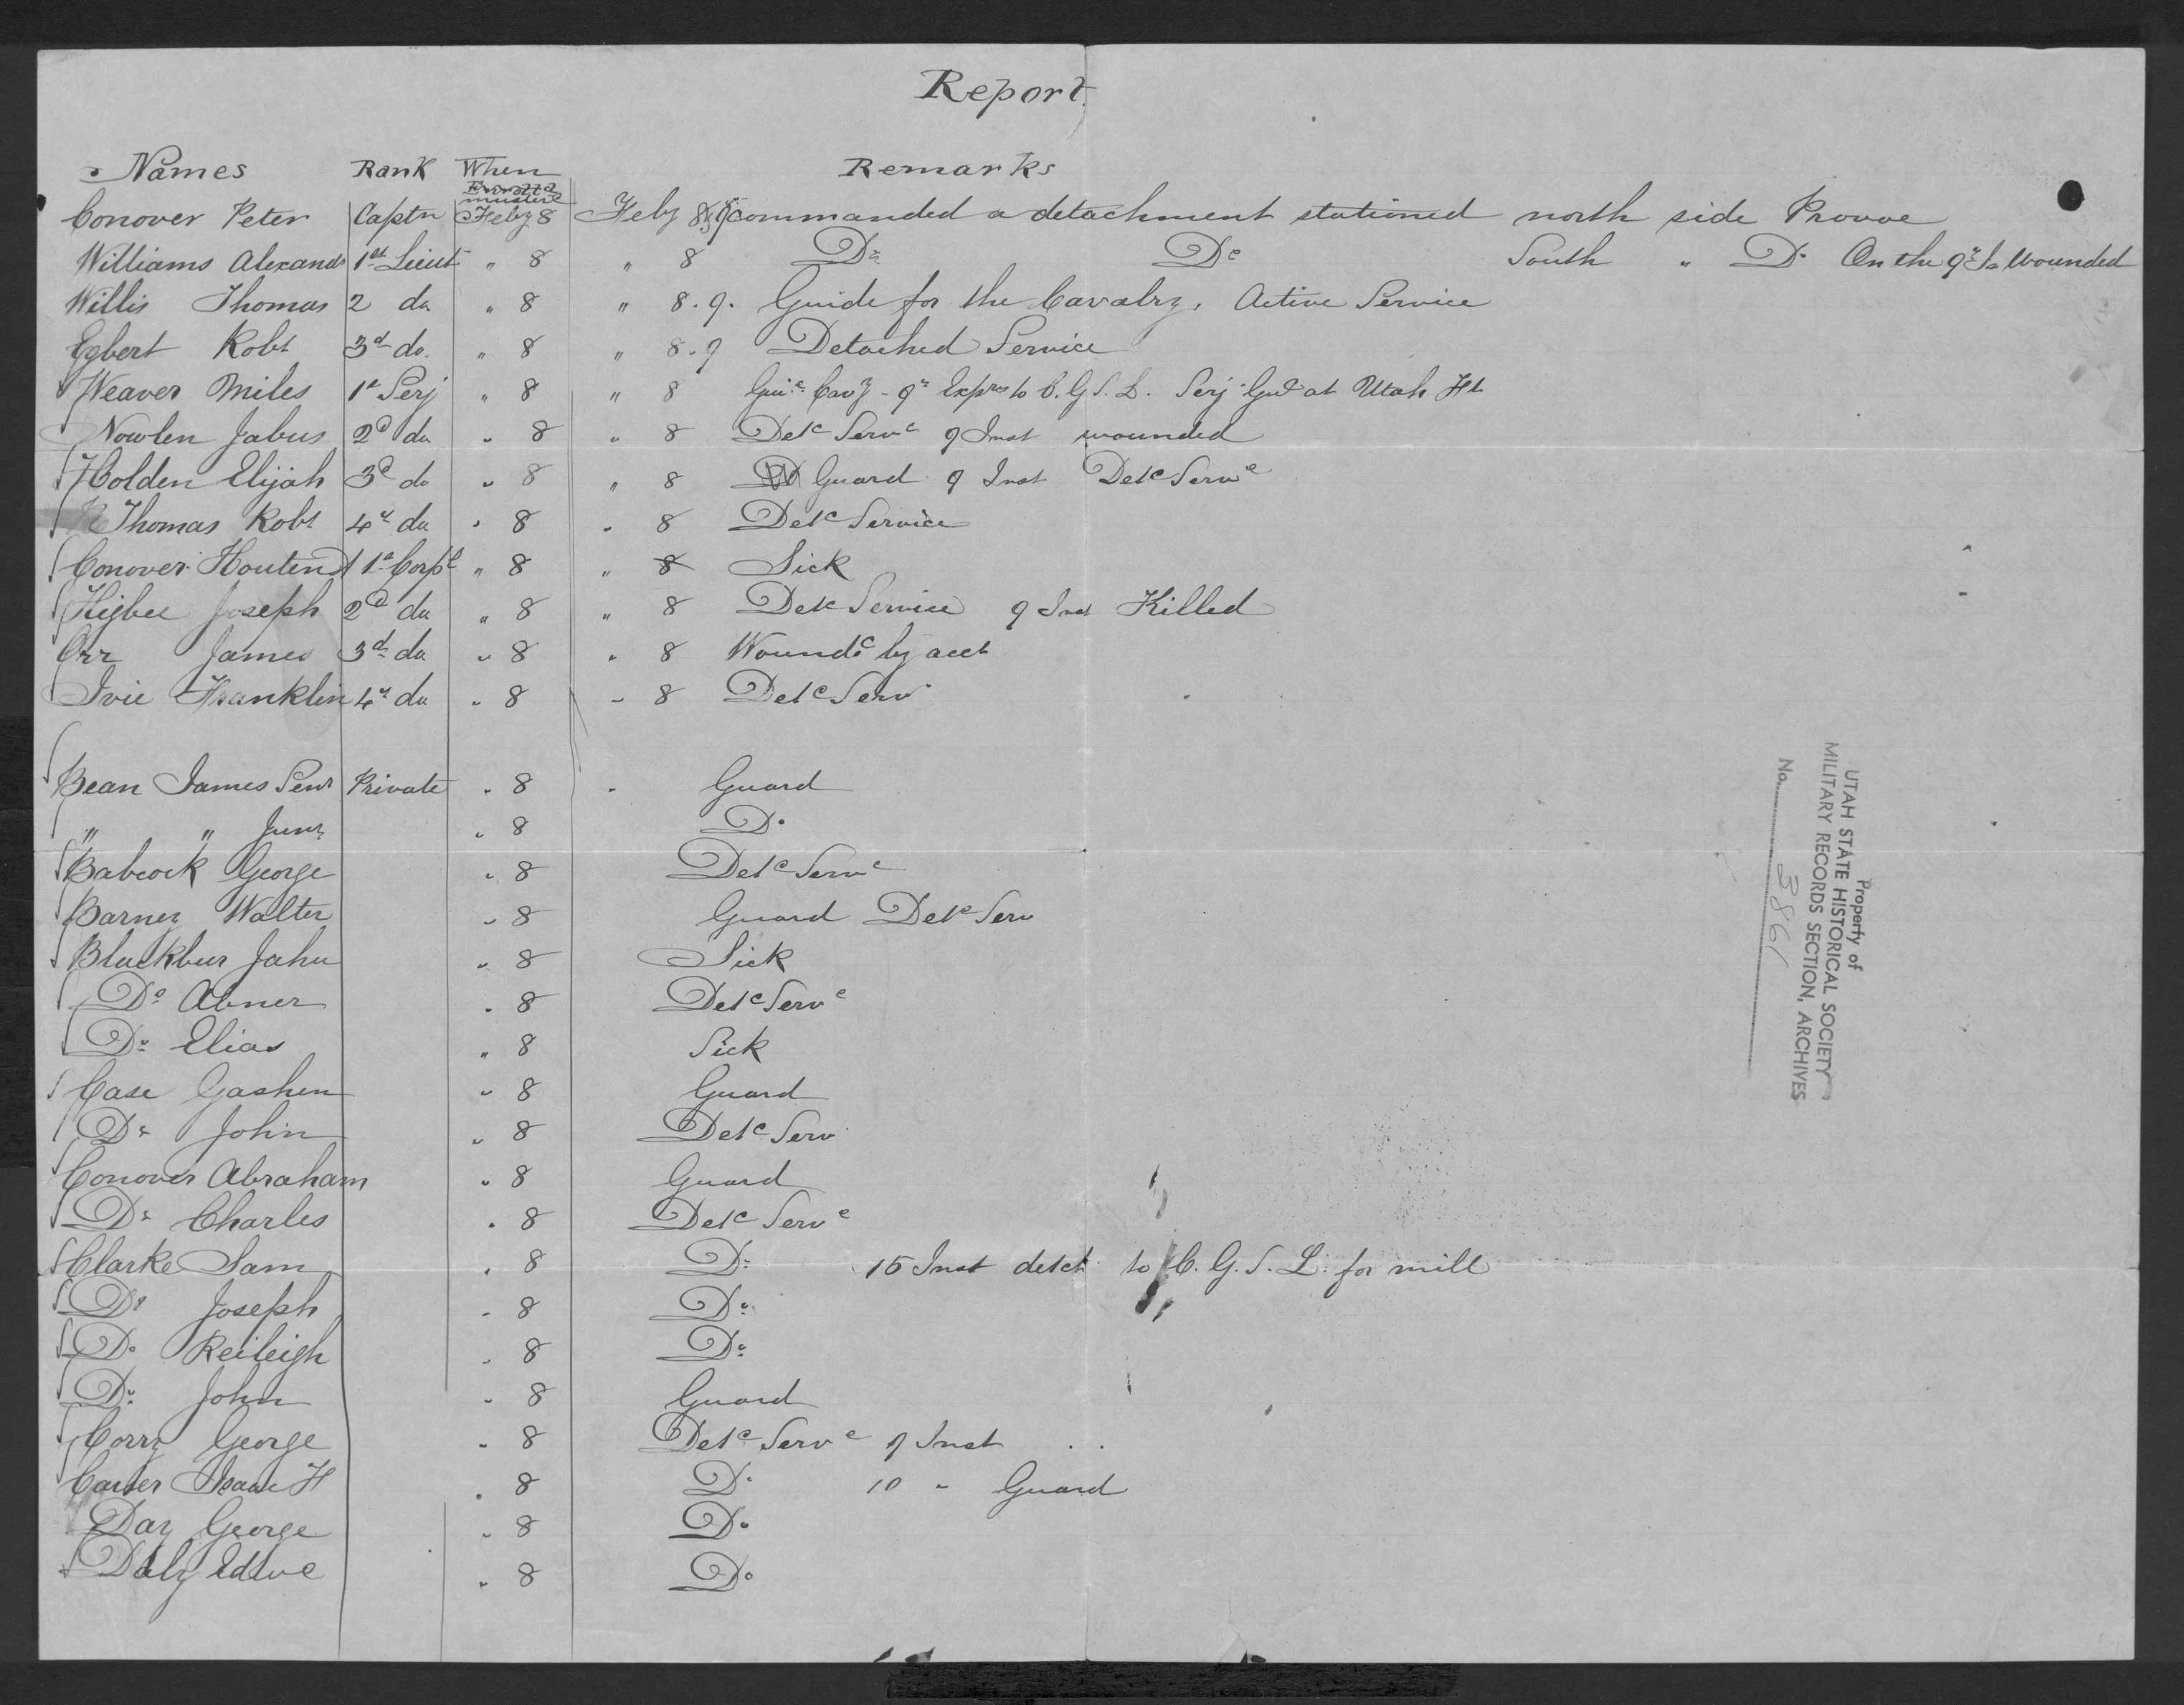 Report
Names Rank When Remarks
musterd
Conover Peter Captn Feby 8 Feby 8 & 9 commanded a detachment stationed north side Provoe
Williams Alexandr 1st Lieut " 8 " 8 Do Do South " Do On the 9th Do Wounded
Willis Thomas 2 do " 8 " 8.9. Guide for the Cavalry. Active Service
Egbert Robt 3d do. " 8 " 8.9 Detached Service
Weaver Miles 1st Serj " 8 " 8 Gui. Cavy - 9th Expss to C. G. S. L. Serj Gud at Utah Ft
Nowlen Jabus 2d do " 8 " 8 Detc Servc 9 Inst wounded
Holden Elijah 3d do " 8 " 8 Guard 9 Inst Detc Serve
Thomas Robt 4th do " 8 " 8 Detc Service
Conover Houtend 1st Corpl " 8 " 8 Sick
Higbee Joseph 2d do " 8 " 8 Detc Service 9 Inst Killed
Orr James 3d do " 8 " 8 Woundd by acct
Ivie Franklin 4th do " 8 " 8 Detc Serv
Bean James Senr Private " 8 " Guard
" " Junr " 8 Do
Babcock George " 8 Detc Serve
Barney Walter " 8 Guard Detc Serv
Blackbur Jahu " 8 Sick
Do Abner " 8 Detc Serve
Do Elias " 8 Sick
Case Gashen " 8 Guard
Do John " 8 Detc Serv
Conover Abraham " 8 Guard
Do Charles " 8 Detc Serve
Clarke Sam " 8 Do 15 Inst detch to C. G. S. L. for mill
Do Joseph " 8 Do
Do Reileigh " 8 Do
Do John " 8 Guard
Corry George " 8 Detc Serve 9 Inst . .
Carter Isaac H " 8 Do 10 " Guard
Day George " 8 Do
Daly Edwe " 8 Do
Property of
UTAH STATE HISTORICAL SOCIETY
MILITARY RECORDS SECTION, ARCHIVES
No. 3861